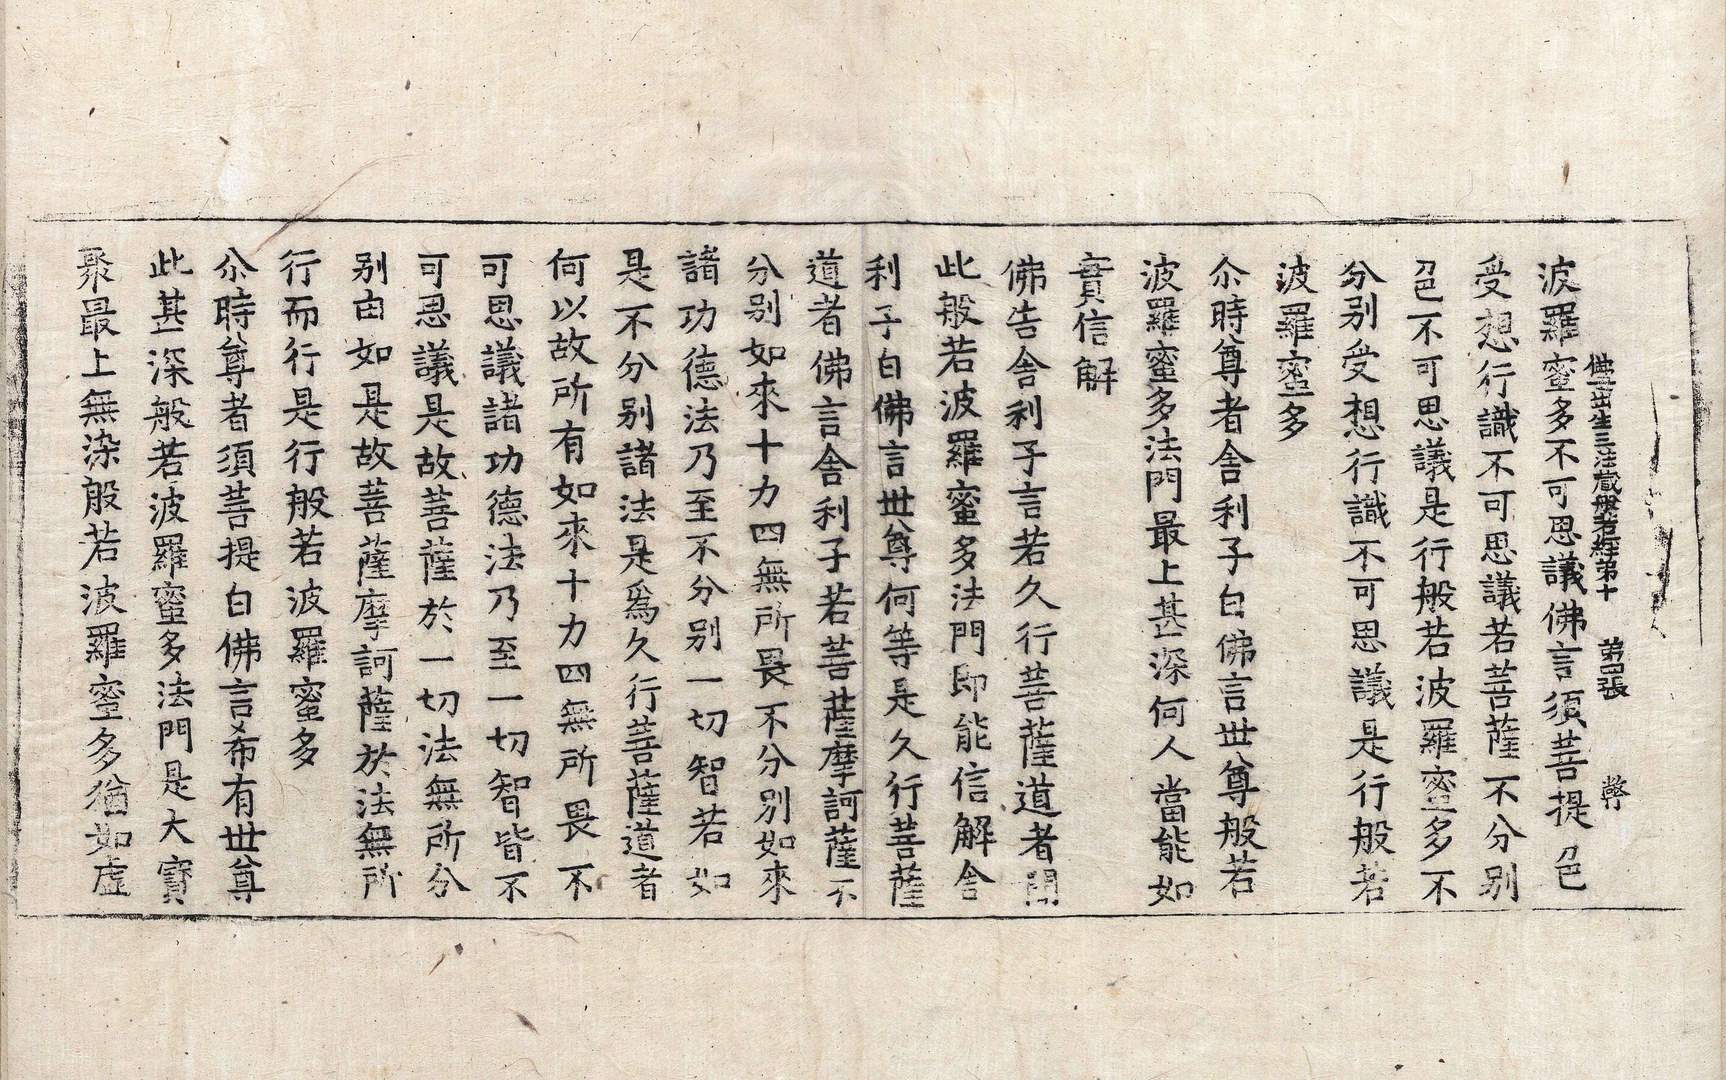 佛三出生三法藏般若經第十　第四張
波羅蜜多不可思議佛言須菩提色
受想行識不可思議若菩薩不分別
色不可思議是行般若波羅蜜多不
分別受想行識不可思議是行般若
波羅蜜多
尒時尊者舍利子白佛言世尊般若
波羅蜜多法門最上甚深何人當能如
實信解
佛告舍利子言若久行菩薩道者聞
此般若波羅蜜多法門即能信解舍
利子白佛言世尊何等是久行菩薩
道者佛言舍利子若菩薩摩訶薩不
分別如來十力四無所畏不分別如來
諸功德法乃至不分別一切智若如
是不分別諸法是爲久行菩薩道者
何以故所有如來十力四無所畏不
可思議諸功德法乃至一切智皆不
可思議是故菩薩於一切法無所分
別由如是故菩薩摩訶薩於法無所
行而行是行般若波羅蜜多
尒時尊者須菩提白佛言希有世尊
此甚深般若波羅蜜多法門是大寶
聚最上無染般若波羅蜜多猶如虛